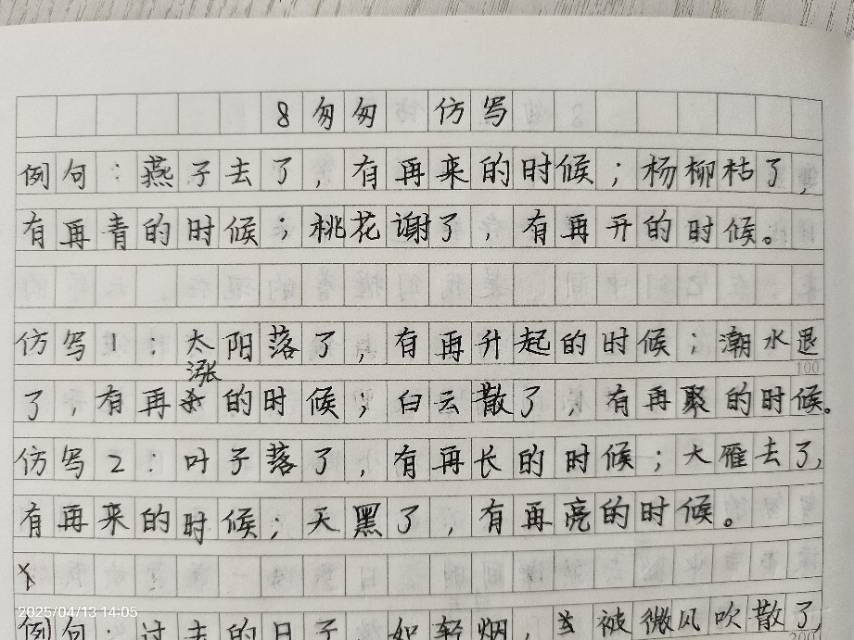 8匆匆 仿写
例句：燕子去了，有再来的时候；杨柳枯了，
有再青的时候；桃花谢了，有再开的时候。
仿写1：太阳落了，有再升起的时候；潮水退
涨
了，有再的时候；白云散了，有再聚的时候。
仿写2：叶子落了，有再长的时候；大雁去了，
有再来的时候；天黑了，有再亮的时候。
100
2025/04/13 14:05
例句：过去的日子如轻烟，被微风吹散了，
200